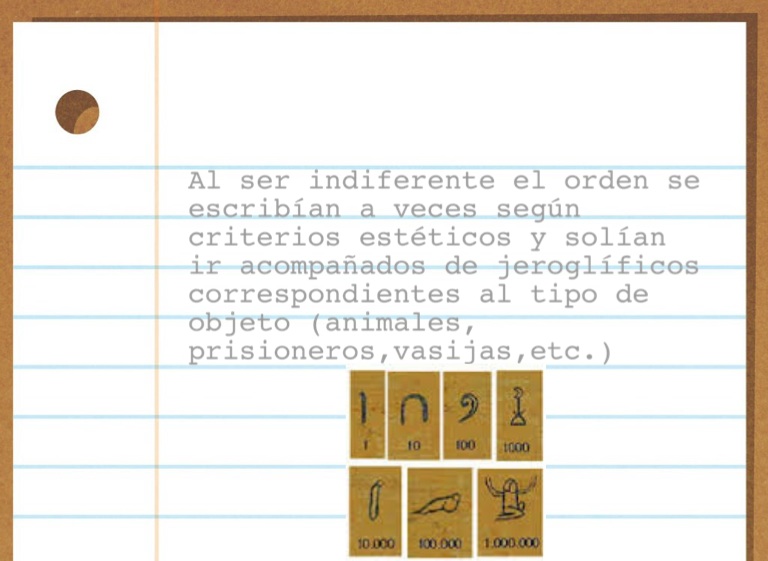 Al ser indiferente el orden se
escribían a veces según
criterios estéticos y solían
ir acompañados de jeroglíficos
correspondientes al tipo de
objeto (animales,
prisioneros,vasijas,etc.)
1 10 100 1000
10.000 100.000 1.000.000